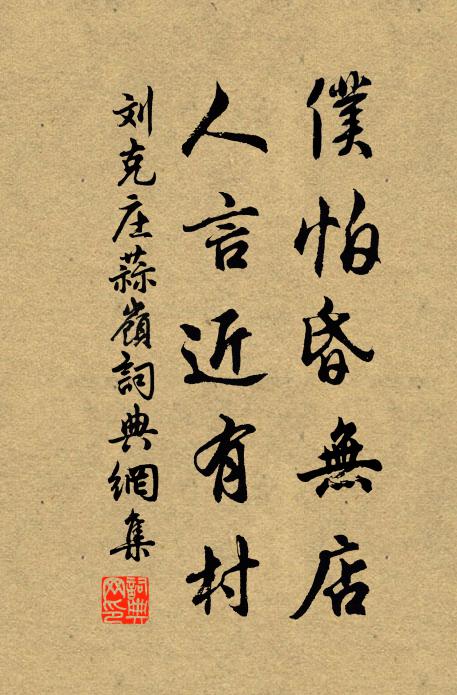 僕怕昏無店
人言近有村
刘克庄蒜嶺詞典網集
詞典
网印